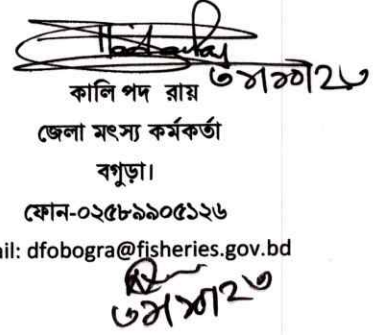 কালি পদ রায়
জেলা মৎস্য কর্মকর্তা
বগুড়া।
ফোন-০২৫৮৯৯০৫১২৬
ail: dfobogra@fisheries.gov.bd